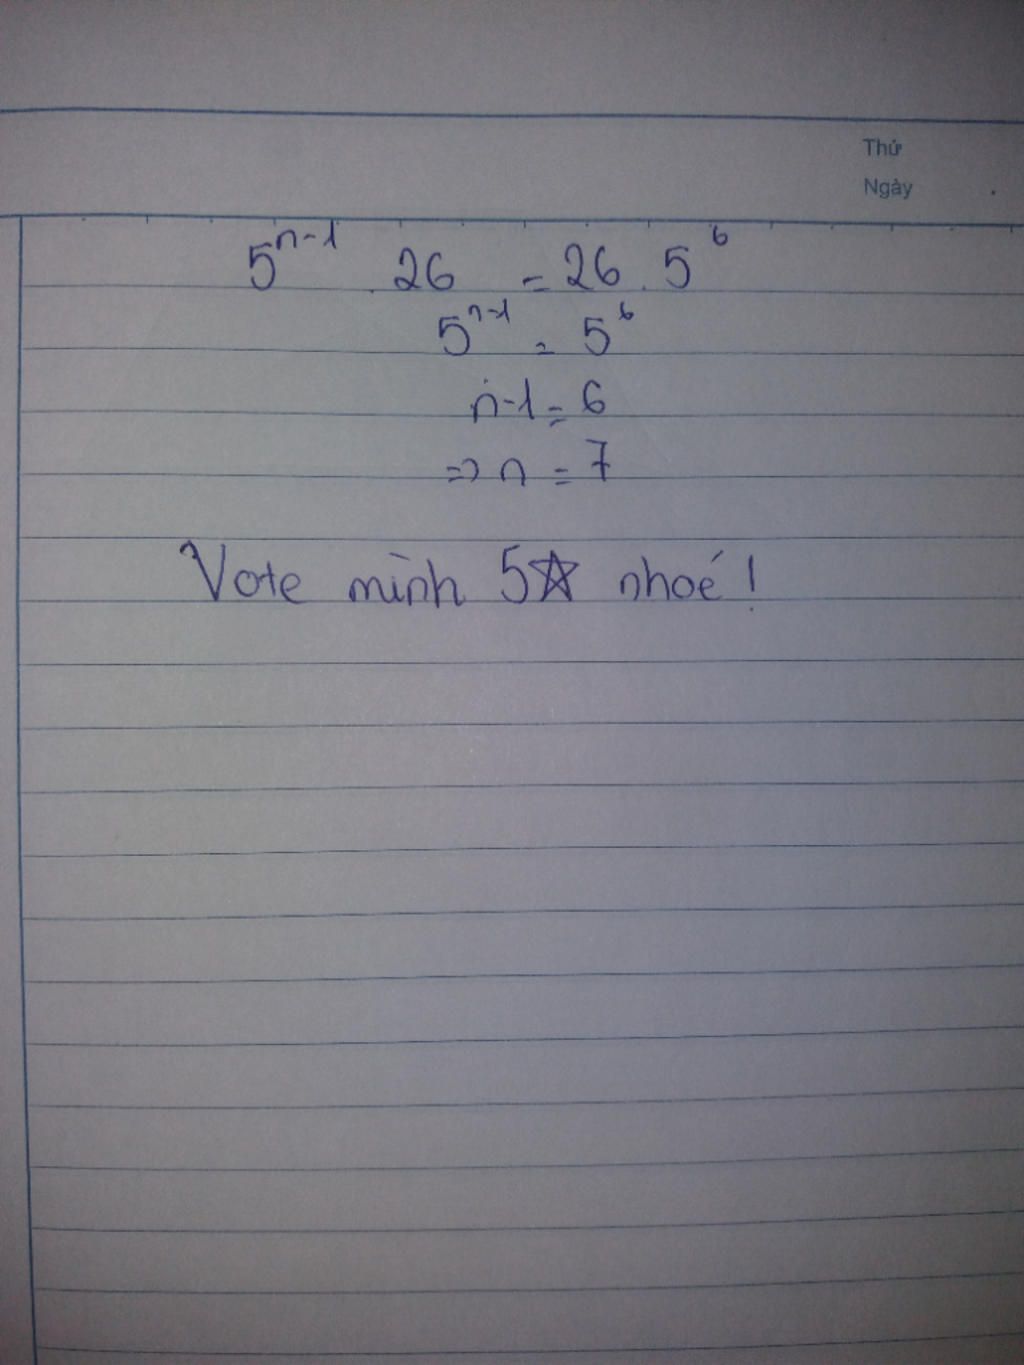 Thứ
Ngày
5^{n-1} . 26 = 26 . 5^6
5^{n-1} = 5^6
n-1 = 6
=> n = 7
Vote mình 5☆ nhoé !